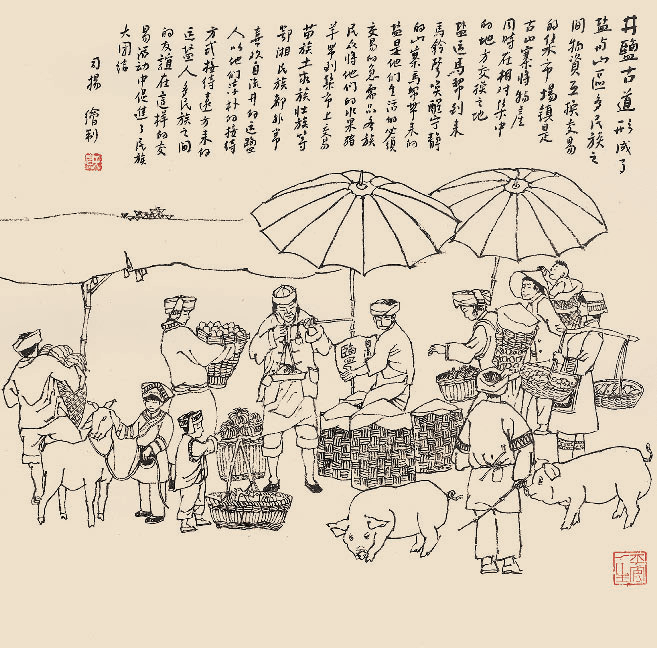 井鹽古道形成了
盐与山區多民族之
间物資互换交易
的集市場鎮是
古山寨将物産
同時在相对集中
的地方交换之地
盐运馬帮到来
馬鈴聲唤醒宁静
的山寨馬帮带来的
盐是他们生活的必须
交易的急需品各族
民众将他们的水果猪
羊带到集市上交易
苗族土家族壮族等
鄂湘民族都非常
喜欢自流井的运鹽
人以他们淳朴的接待
方式接待遠方来的
运盐人多民族之间
的友谊在這样的交
易活动中促進了民族
大团结
司揚 繪制
鹽